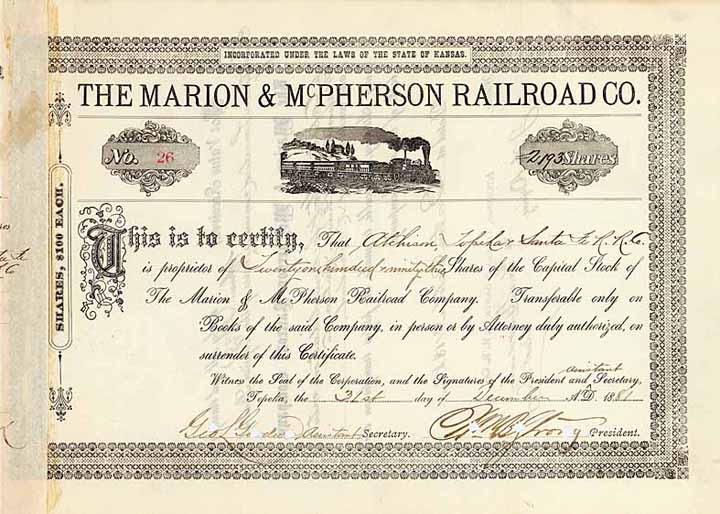 INCORPORATED UNDER THE LAWS OF THE STATE OF KANSAS.
THE MARION & McPHERSON RAILROAD CO.
No. 26
2193 Shares
SHARES, $100 EACH.
This is to certify, That Atchison, Topeka & Santa Fe R. R. Co.
is proprietor of Twenty one hundred & ninety three Shares of the Capital Stock of
The Marion & McPherson Railroad Company. Transferable only on
Books of the said Company, in person or by Attorney duly authorized, on
surrender of this Certificate.
Witness the Seal of the Corporation, and the Signatures of the President and Assistant Secretary,
Topeka, the 31st day of December A.D. 1881
Geo. Assistant Secretary. Wm B Strong President.